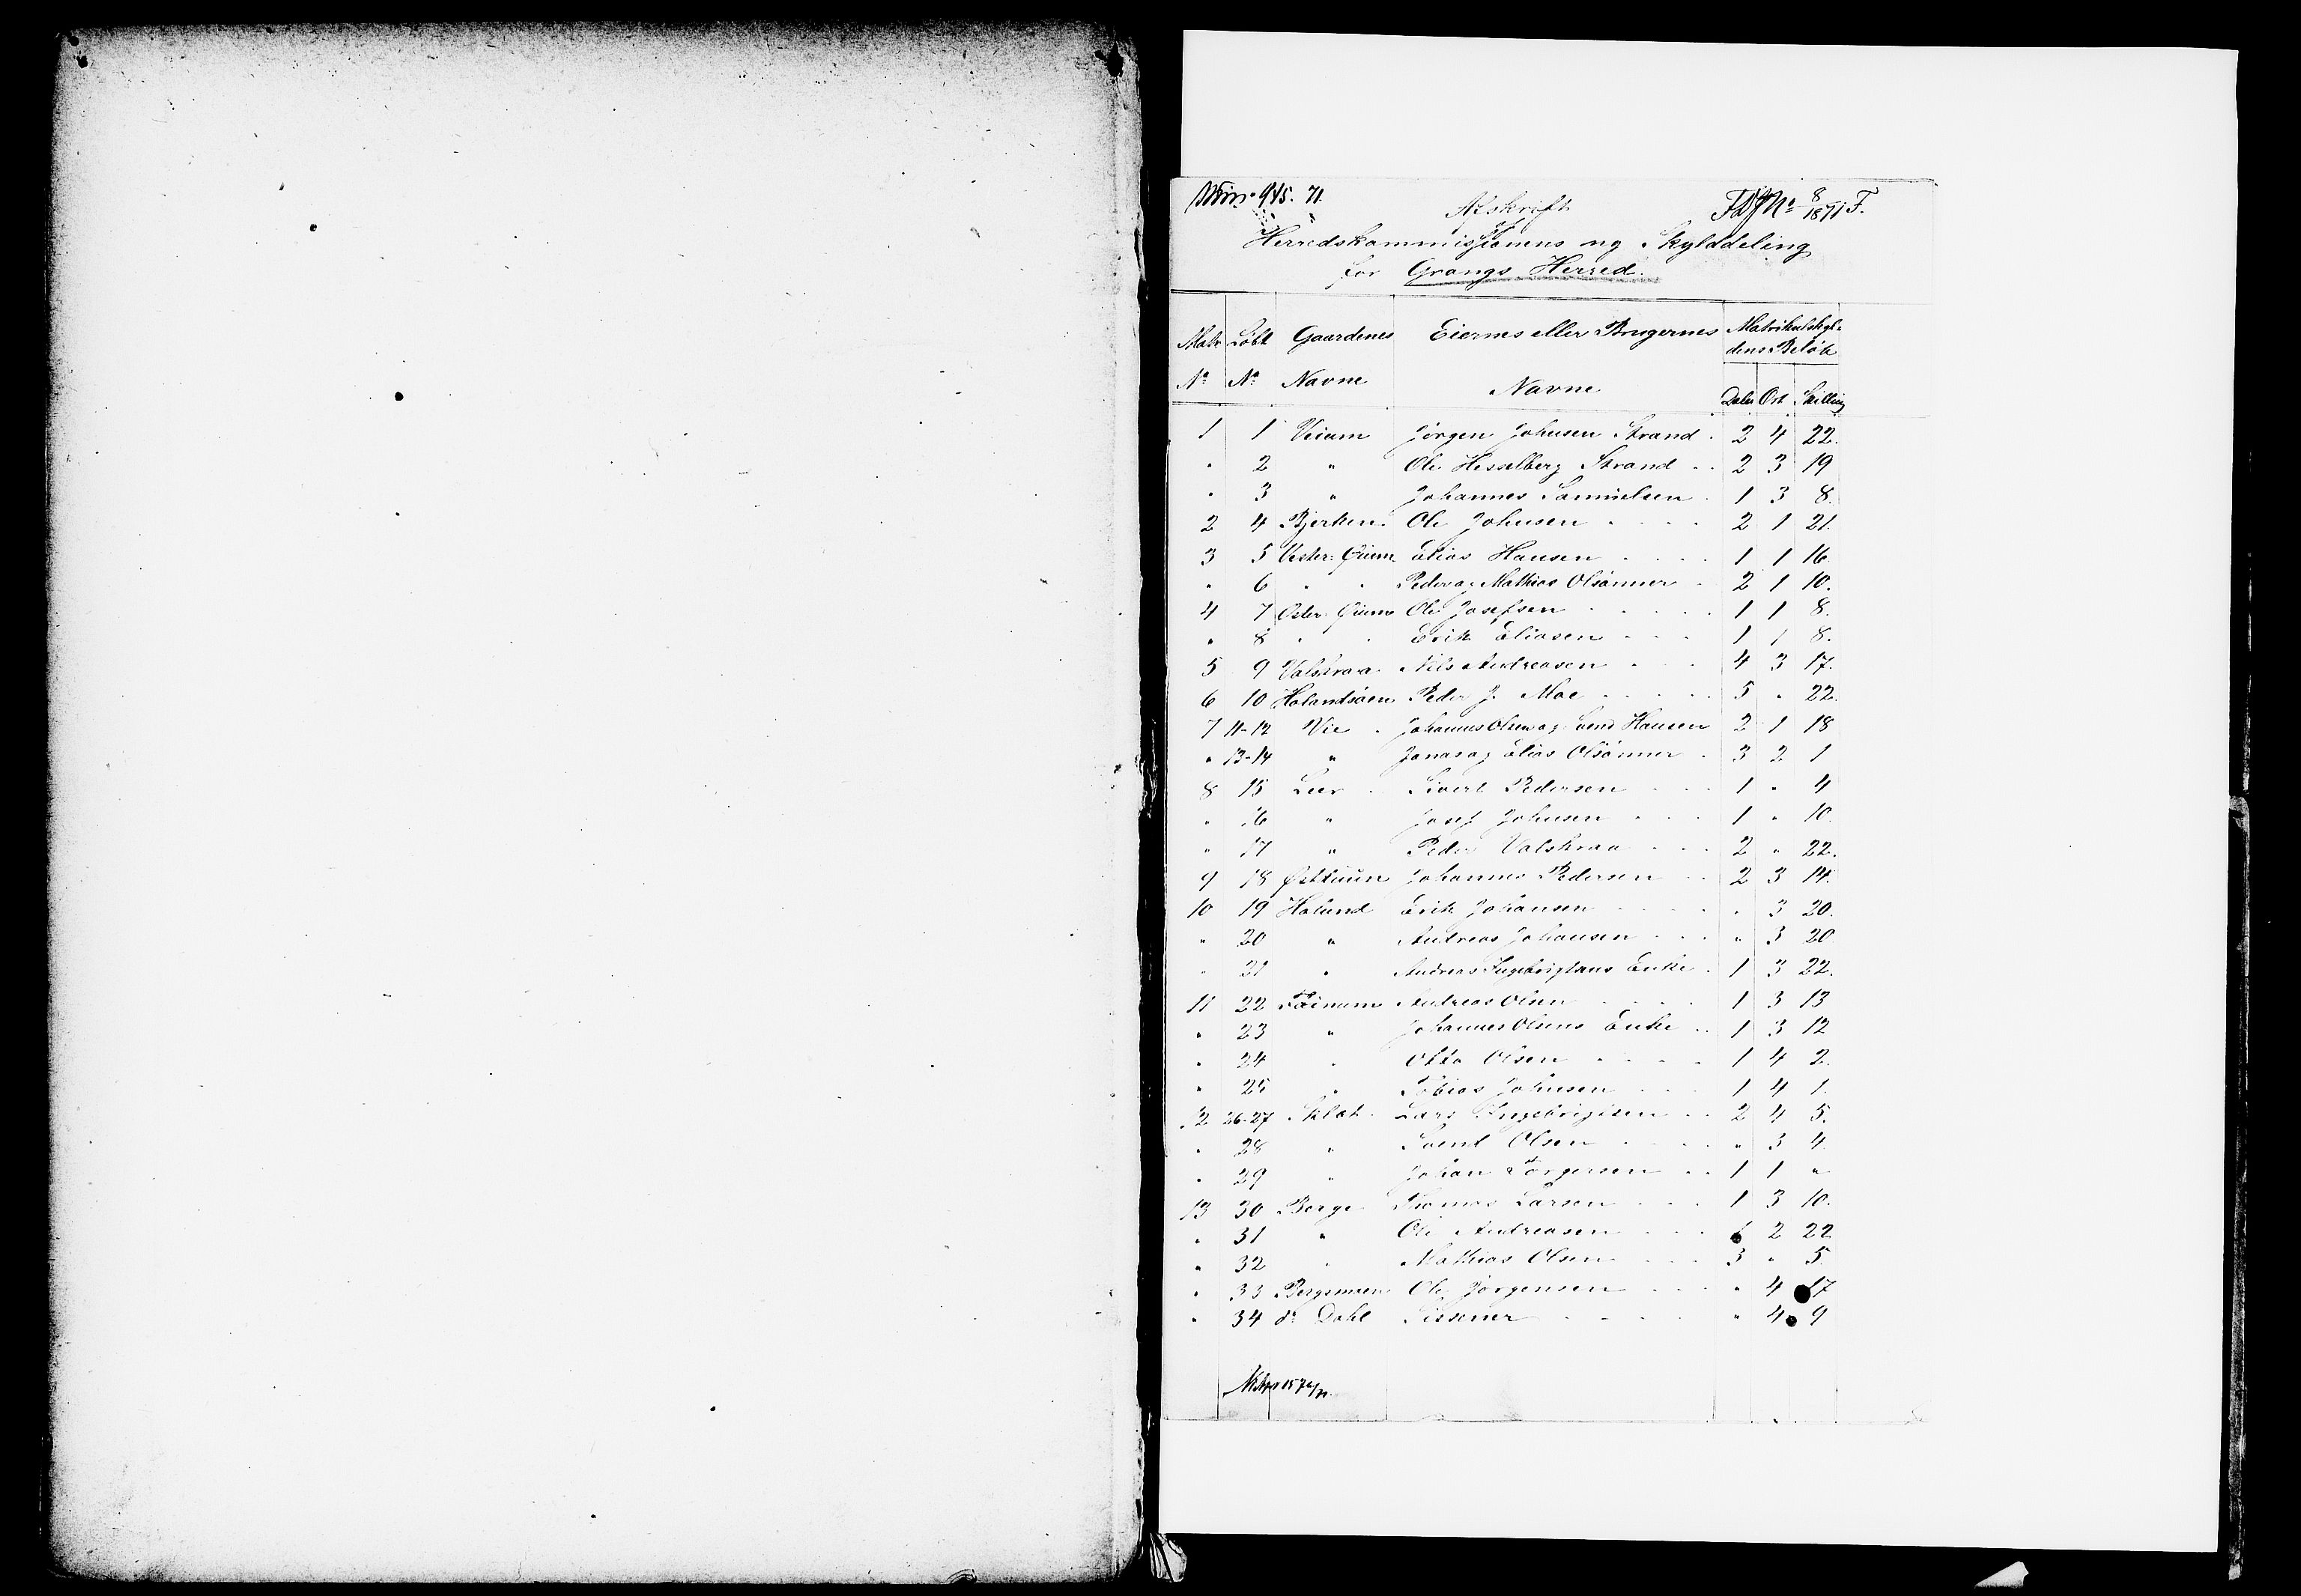 945. 71.
Afskrift
8/1871 F.
af
Herredskommissionens ny Skylddeling
for Grongs Herred.
Matr Løbe Gaardenes Eiernes eller Brugernes Matrikulskyl-
dens Beløb
No No Navne Navne Daler Ort Skilling
1 1 Veium Jørgen Johnsen Strand 2 4 22.
" 2 " Ole Hesselberg Strand 2 3 19
" 3 " Johannes Samuelsen 1 3 8.
2 4 Bjerken Ole Johnsen 2 1 21.
3 5 Vester: Gium Elias Hansen 1 1 16
" 6 " " Peder og Mathias Olsønner 2 1 10.
4 7 Øster Gium Ole Josefsen 1 1 8.
" 8 " " Erik Eliasen 1 1 8.
5 9 Valskraa Nils Andreasen 4 3 17.
6 10 Holandsøen Peder J. Moe 5 " 22.
7 11-12 Vie Johannes Olsen og Hansen 2 1 18
" 13-14 " Jonas og Elias Olsønner 3 2 1
8 15 Leer Sivert Pedersen 1 " 4
" 16 " Josef Johnsen 1 " 10
" 17 " Peder Valskraa 2 " 22.
9 18 Østtuun Johannes Pedersen 2 3 14.
10 19 Holand Erik Johansen " 3 20.
" 20 " Andreas Johansen " 3 20
" 21 " Andreas Ingebrigtsens Enke 1 3 22.
11 22 Fæinum Andreas Olsen 1 3 13
" 23 " Johannes Olsens Enke 1 3 12
" 24 " Otto Olsen 1 4 2.
" 25 " Tobias Johnsen 1 4 1.
12 26-27 Sklæt Lars Ingebrigtsen 2 4 5.
" 28 " Svend Olsen " 3 4
" 29 " Johan Jørgensen 1 1 "
13 30 Berge Thomas Larsen 1 3 10.
" 31 " Ole Andreasen 2 22
" 32 " Mathias Olsen 3 " 5
" 33 Bergsmoen Ole Jørgensen " 4 17
" 34 do Dahl Sissener " 4 9